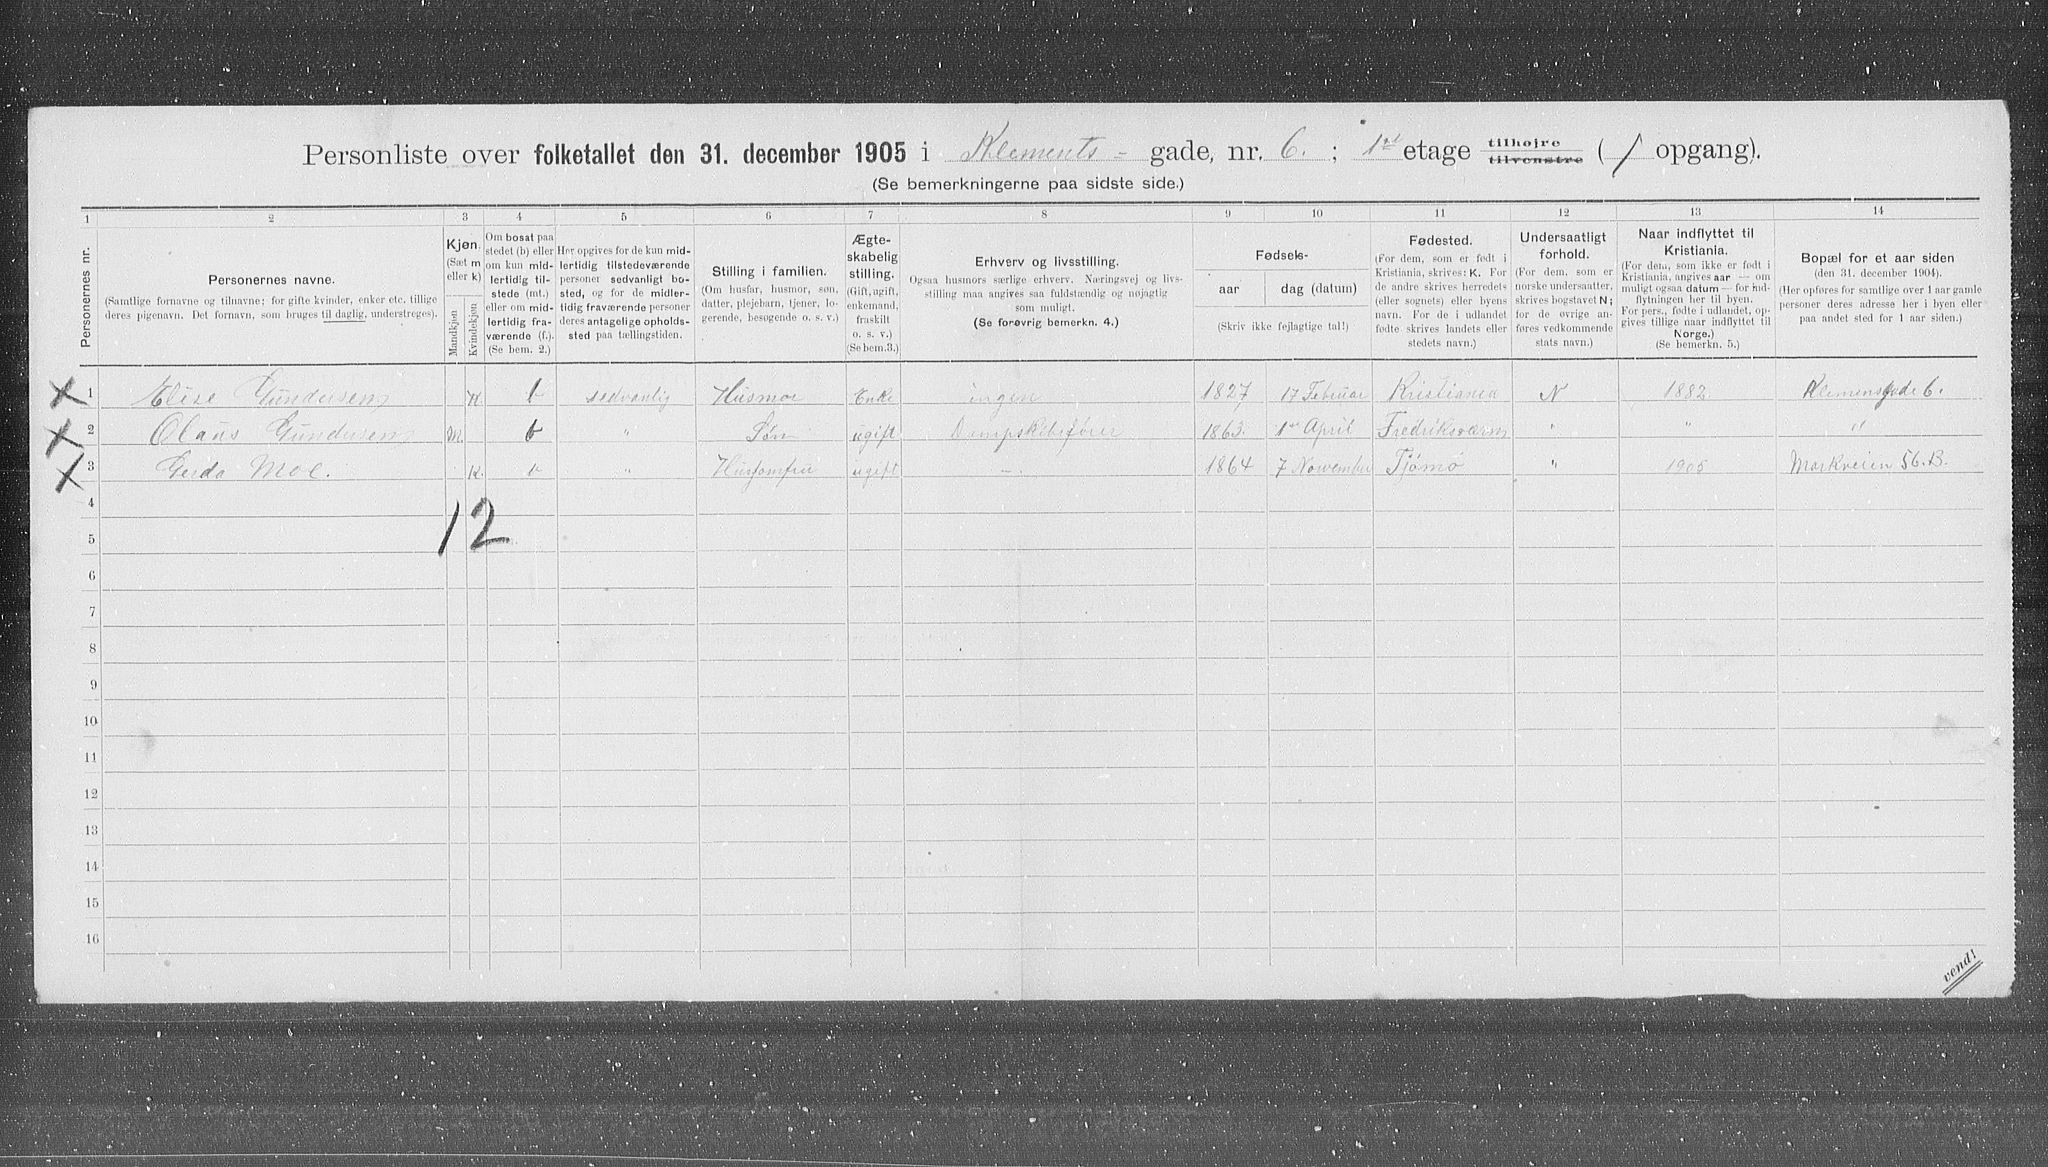 Personliste over folketallet den 31. december 1905 i Klements - gade, nr. 6. ; 1ste etage tilhøjre tilvenstre ( / opgang).
(Se bemerkningerne paa sidste side.)
1 2 3 4 5 6 7 8 9 10 11 12 13 14
Personernes nr.
Personernes navne.
(Samtlige fornavne og tilnavne; for gifte kvinder, enker etc. tillige
deres pigenavn. Det fornavn, som bruges til daglig, understreges).
Kjøn.
(Sæt m
eller k)
Mandkjøn
Kvindekjøn
Om bosat paa
stedet (b) eller
om kun mid-
lertidig til-
stede (mt.)
eller om mid-
lertidig fra-
værende (f.).
(Se bem. 2.)
Her opgives for de kun mid-
lertidig tilstedeværende
personer sedvanligt bo-
sted, og for de midler-
tidig fraværende personer
deres antagelige opholds-
sted paa tællingstiden.
Stilling i familien.
(Om husfar, husmor, søn,
datter, plejebarn, tjener, lo-
gerende, besøgende o. s. v.)
Ægte-
skabelig
stilling.
(Gift, ugift,
enkemand,
fraskilt
o. s. v.)
(Se bem.3.)
Erhverv og livsstilling.
Ogsaa husmors særlige erhverv. Næringsvej og livs-
stilling maa angives saa fuldstændig og nøjagtig
som muligt.
(Se forøvrig bemerkn. 4.)
Fødsels-
aar
dag (datum)
(Skriv ikke fejlagtige tal!)
Fødested.
(For dem, som er født i
Kristiania, skrives: K. For
de andre skrives herredets
(eller sognets) eller byens
navn. For de i udlandet
fødte skrives landets eller
stedets navn.)
Undersaatligt
forhold.
(For dem, som er
norske undersaatter,
skrives bogstavet N;
for de øvrige an-
føres vedkommende
stats navn.)
Naar indflyttet til
Kristiania.
(For dem, som ikke er født i
Kristiania, angives aar — om
muligt ogsaa datum — for ind-
flytningen her til byen.
For pers., fødte i udlandet, op-
gives tillige naar indflyttet til
Norge.)
(Se bemerkn. 5.)
Bopæl for et aar siden
(den 31. december 1904).
(Her opføres for samtlige over 1 aar gamle
personer deres adresse her i byen eller
paa andet sted for 1 aar siden.)
X 1 Elise Gundersen K. b sedvanlig Husmor Enke ingen 1827 17 Februar Kristiania N 1882 Klemensgade 6.
X 2 Olaus Gundersen M. b " Søn ugift Dampskibsfører 1863. 1ste April Fredriksværn " " "
X 3 Gerda Moe. K. b " Husjomfru ugift — 1864 7 November Tjømø " 1905 Markveien 56.B.
4
12
5
6
7
8
9
10
11
12
13
14
15
16
vend!